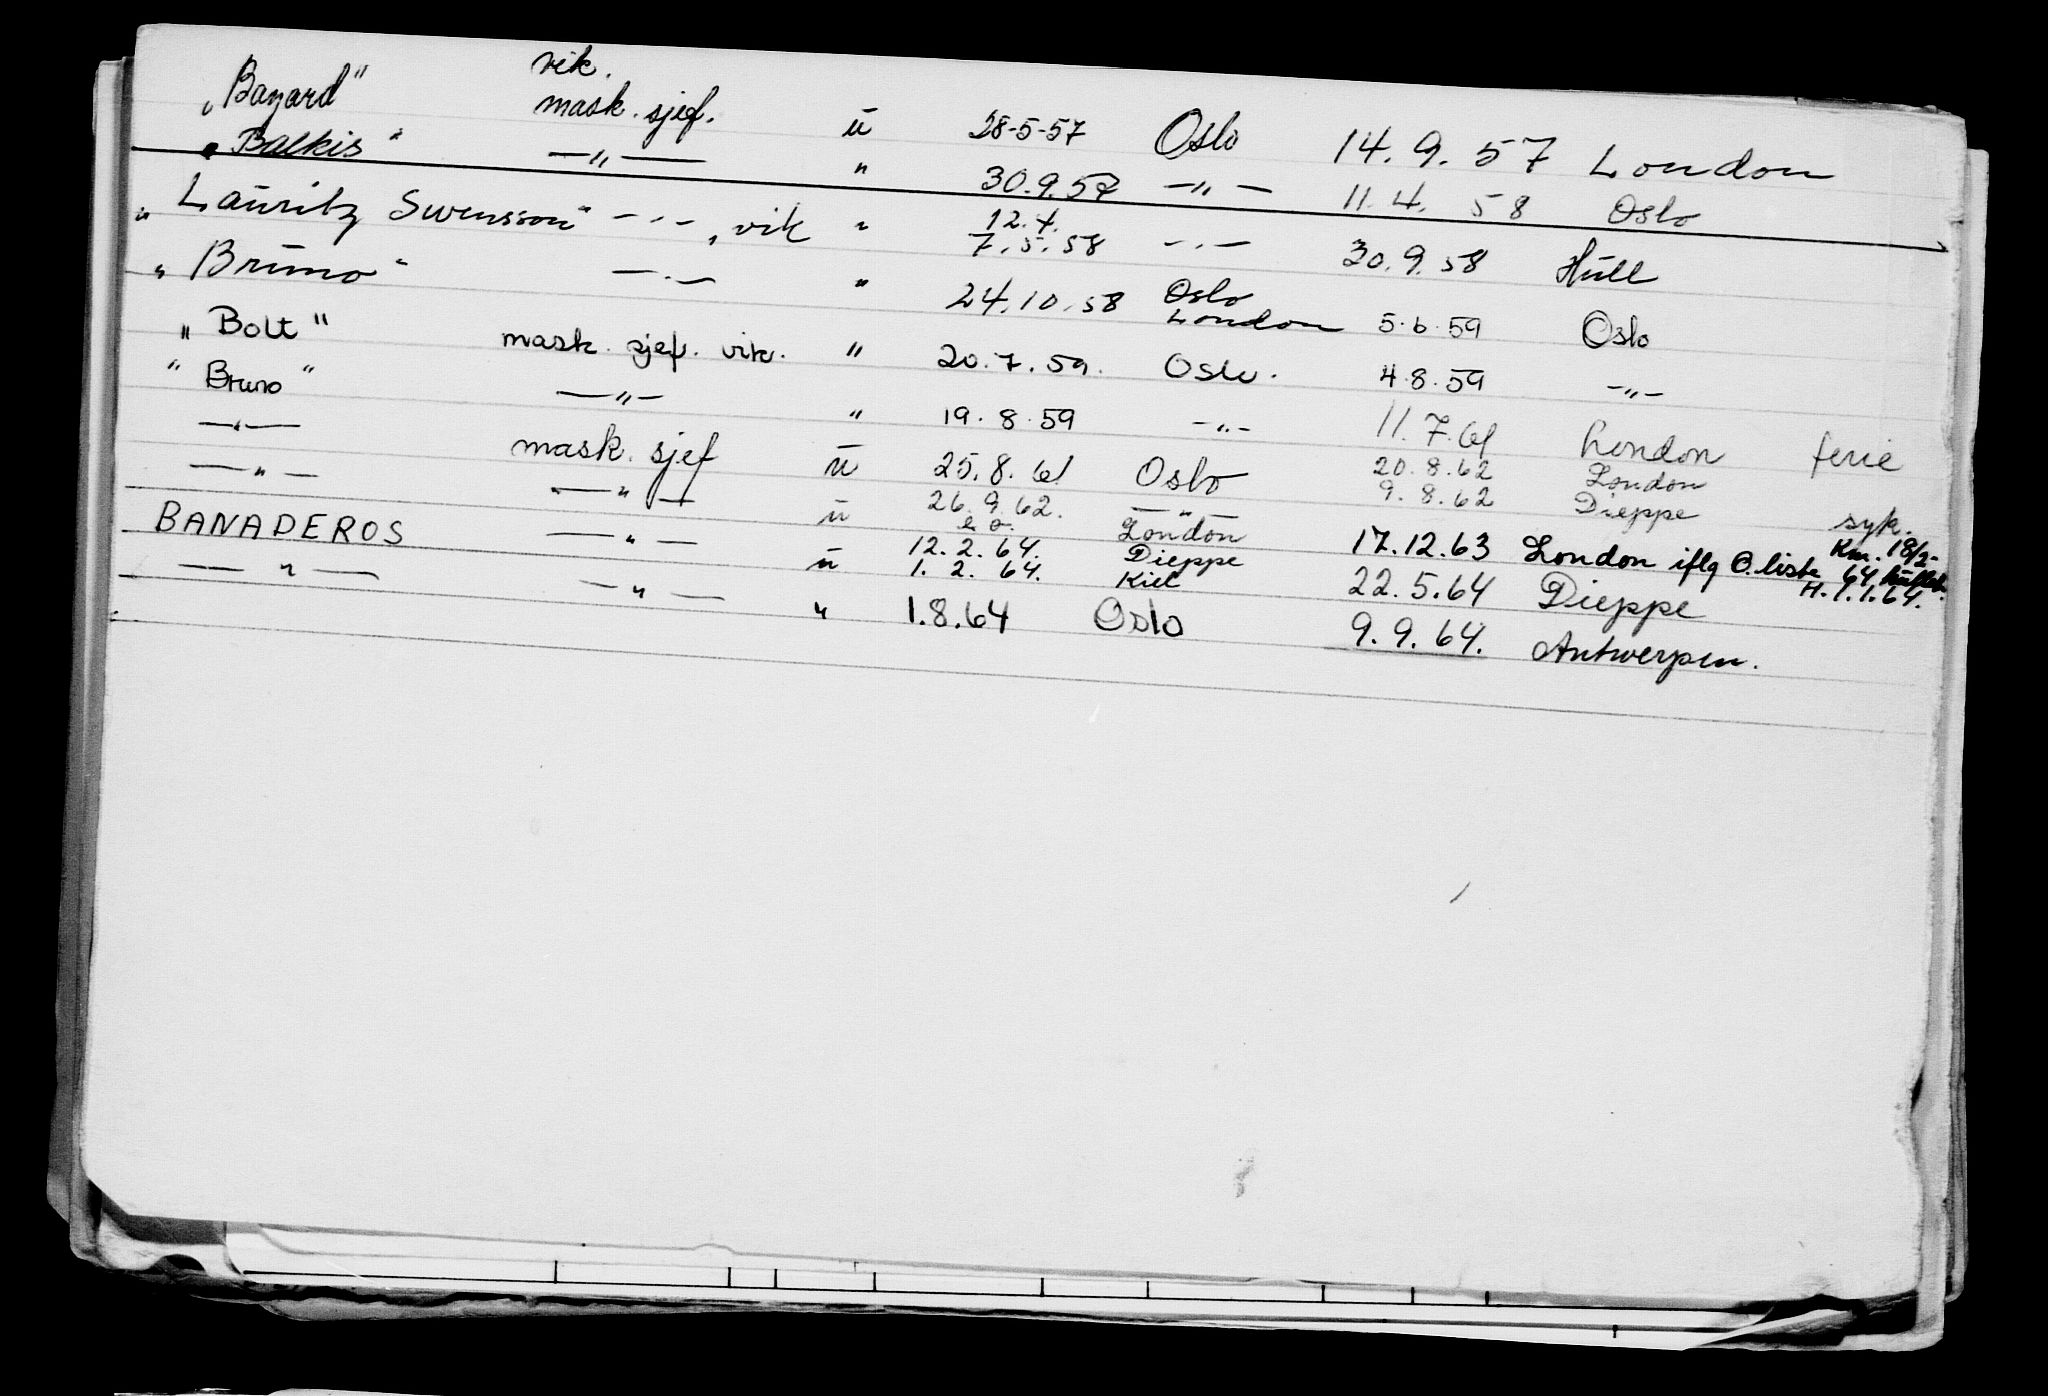 vik.
„Bayard" mask. sjef. u 28-5-57 Oslo 14.9.57 London
„Balkis" —„— " 30.9.57 —„— 11.4.58 Oslo
12.4.
„Lauritz Swensson" —„—, vik " 7.5.58 —„— 30.9.58 Hull
„Bruno" —„— " 24.10.58 Oslo London 5.6.59 Oslo
„Bolt" mask. sjef. vik. " 20.7.59. Oslo. 4.8.59 —„—
"Bruno" —„— " 19.8.59 —„— 11.7.61 London ferie
—„— mask. sjef u 25.8.61 Oslo 20.8.62 London
9.8.62 Dieppe syk.
—„— —„— u 26.9.62. —„—
e.o. London 17.12.63 London iflg O.liste Km. 18/2-64
H. 1.1.64.
BANADEROS —„— u 12.2.64. Dieppe
1.2.64. Kiel 22.5.64 Dieppe
—„— —„— " 1.8.64 Oslo 9.9.64. Antwerpen.